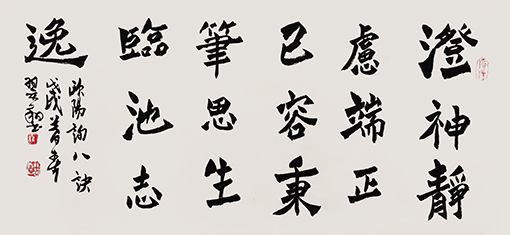 澄神靜
慮端正
己容秉
筆思生
臨池志
逸
歐陽詢八訣
戊戌春